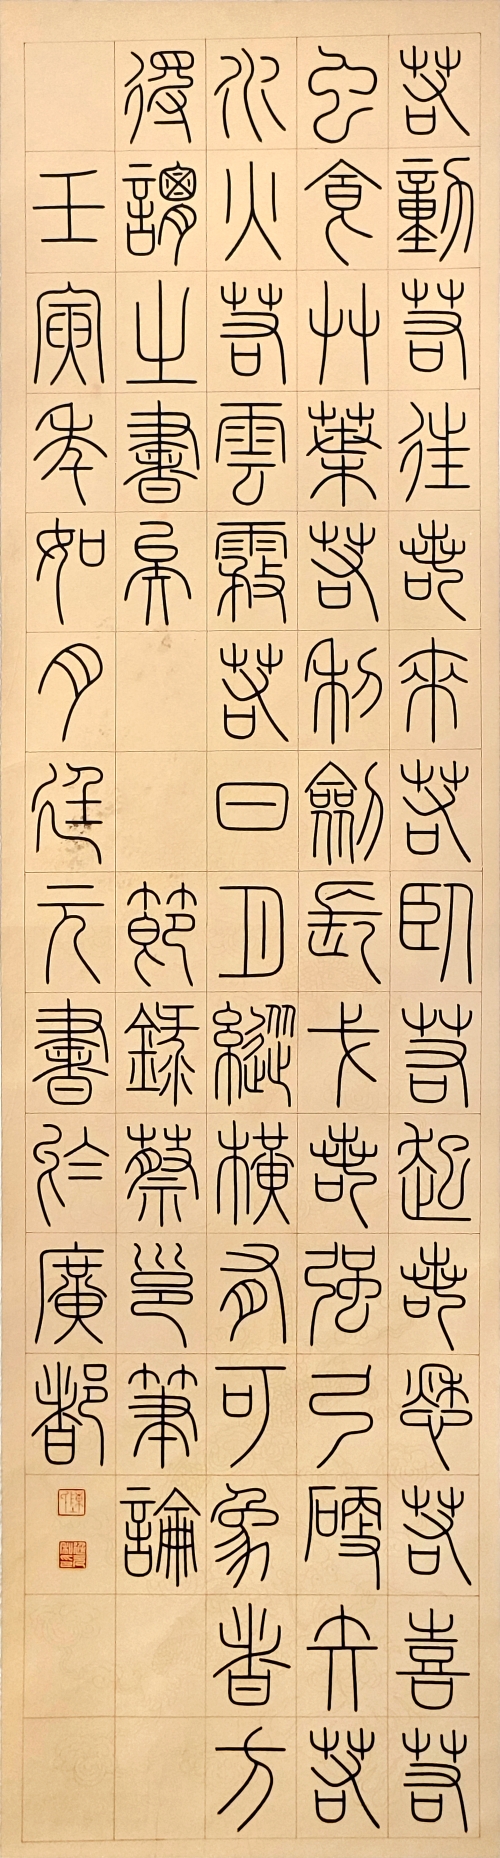 若動若往若來若臥若起若愁若喜若
虫食艸葉若利劍長戈若强弓硬矢若
水火若雲霧若日月縱橫有可象者方
得謂之書矣 節錄蔡邕筆論
壬寅年如月元書於廣都